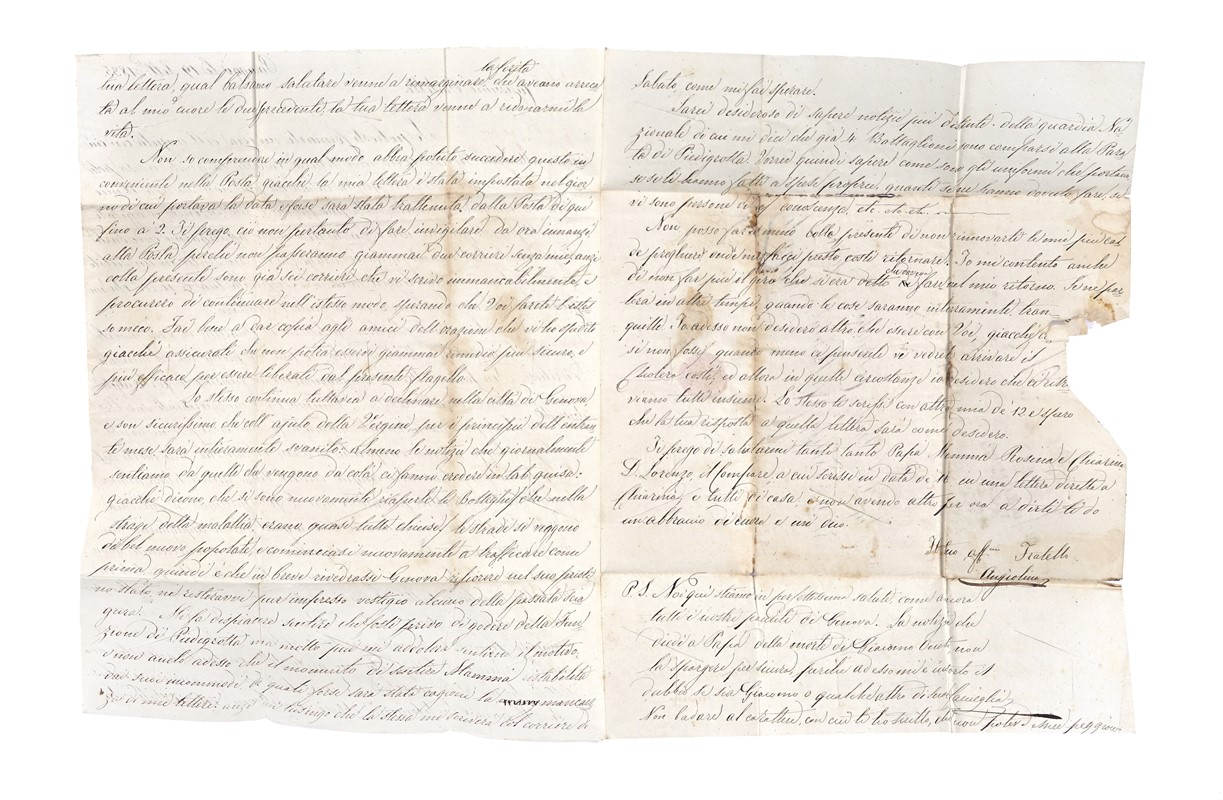 la ferita
tua lettera, qual balsamo salutare venne a rimarginare, che aveano arreca
ta al mio cuore le due precedenti, la tua lettera venne a ridonarmi la
vita.
Non so comprendere in qual modo abbia potuto succedere questo in
conveniente nella Posta, giacchè la mia lettera è stata impostata nel gior
no di cui portava la data e forse sarà stata trattenuta dalla Posta di qui
fino a 2. Ti prego, ciò non pertanto di fare invigilare da ora innanzi
alla Posta, perchè non passeranno giammai due corrieri senza mie, anzi
colla presente sono già sei corrieri che vi scrivo immancabilmente, e
procurerò di continuare nell'istesso modo, sperando che Voi farete l'istes
so meco. Fai bene a dar copia agli amici dell'orazione che vi ho spedito
giacchè assicurati che non potrà esservi giammai rimedio più sicuro, e
più efficace per essere liberati dal presente flagello.
Lo stesso continua tuttavia a declinare nella città di Genova
e son sicurissimo che coll'ajuto della Vergine, per i principii dell'entran
te mese sarà intieramente svanito: almeno le notizie che giornalmente
sentiamo da quelli che vengono da colà, ci fanno credere in tal guisa.
giacchè dicono, che si sono nuovamente riaperte le Botteghe, che nella
strage della malattia, erano quasi tutte chiuse, le strade si veggono
di bel nuovo popolate, e cominciasi nuovamente a trafficare come
prima, quindi è che in breve rivedrassi Genova rifiorire nel suo pristi
no stato, ne resteravvi pur impresso vestigio alcuno della passata scia
gura. Mi fa dispiacere sentire che foste privo di godere della Fun
zione di Piedigrotta ma molto più mi addolora sentirne il motivo,
e non anelo adesso, che il momento di sentire Mamma ristabilita
dai suoi incommodi, i quali forse sarà stata cagione la mancan
za di mie lettere: anzi mi lusingo che la stessa mi scriverà col corriere di
Salute, come mi fai sperare.
Sarei desideroso di sapere notizie più distinte della guardia Na
zionale di cui mi dici che già 4 Battaglioni sono comparsi alla Para
ta di Piedigrotta. Vorrei quindi sapere come sono gli uniformi che portano
se se li hanno fatti a spese proprie, quanti se ne hanno dovuto fare, se
vi sono persone di conoscenza, etc. etc. etc.
Non posso far a meno colla presente di non rinnovarti le mie più cal
de preghiere onde mi facci presto costì ritornare. Io mi contento anche
di non far più il giro che si era detto farsi nel mio ritorno. Se ne par
lerà in altro tempo, quando le cose saranno interamente tran-
quille. Io adesso non desidero altro che essere con Voi, giacchè
si non fossi, quando meno ci penserete vi vedrete arrivare il
Cholera costì, ed allora in quelle circostanze io desidero che ci
viamo tutti insieme. Lo stesso te scrissi con altra mia de' 12 e spero
che la tua risposta a quella lettera sarà come desidero.
Ti prego di salutarmi tanto tanto Papà, Mamma, Rosina e Chiarina
D. Lorenzo, il Compare, a cui scrissi in data de' 16 in una lettera diretta a
Chiarina, e tutti di casa. e non avendo altro per ora a dirti ti do
un abbraccio di cuore e mi dico.
Il tuo aff.mo Fratello
Angiolino
P.S. Noi qui stiamo in perfettissima salute, come ancora
tutti i nostri parenti di Genova. La notizia che
diedi a Papà della morte di Giacomo non
la spargere per sicura, perchè adesso mi è incerto il
dubbio se sia Giacomo o qualche altro di sua famiglia.
Non badare al carattere, con cui ti ho scritto, che non poter essere peggiore